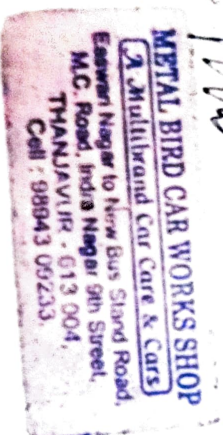 METAL BIRD CAR WORKS SHOP
(A Multibrand Car Care & Cars)
Easwari Nagar to New Bus Stand Road,
M.C. Road, Indra Nagar 9th Street,
THANJAVUR - 613 004,
Cell : 98943 09233